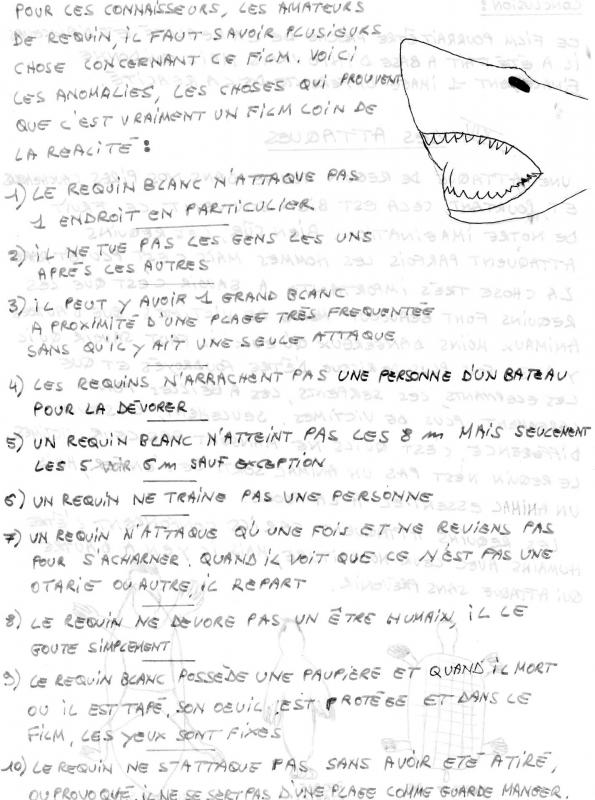 POUR LES CONNAISSEURS, LES AMATEURS
DE REQUIN, IL FAUT SAVOIR PLUSIEURS
CHOSE CONCERNANT CE FILM. VOICI
LES ANOMALIES, LES CHOSES QUI PROUVENT
QUE C'EST VRAIMENT UN FILM LOIN DE
LA REALITÉ :
1) LE REQUIN BLANC N'ATTAQUE PAS
1 ENDROIT EN PARTICULIER
2) IL NE TUE PAS LES GENS LES UNS
APRÉS LES AUTRES
3) IL PEUT Y AVOIR 1 GRAND BLANC
A PROXIMITÉ D'UNE PLAGE TRÉS FREQUENTÉE
SANS QU'IL Y AIT UNE SEULE ATTAQUE
4) LES REQUINS N'ARRACHENT PAS UNE PERSONNE D'UN BATEAU
POUR LA DÉVORER
5) UN REQUIN BLANC N'ATTEINT PAS LES 8 m MAIS SEULEMENT
LES 5 VOIR 6 m SAUF EXCEPTION
6) UN REQUIN NE TRAINE PAS UNE PERSONNE
7) UN REQUIN N'ATTAQUE QU'UNE FOIS ET NE REVIENS PAS
POUR S'ACHARNER. QUAND IL VOIT QUE CE N'EST PAS UNE
OTARIE OU AUTRE, IL REPART
8) LE REQUIN NE DEVORE PAS UN ÊTRE HUMAIN, IL LE
GOUTE SIMPLEMENT
9) LE REQUIN BLANC POSSÈDE UNE PAUPIÈRE ET QUAND IL MORT
OU IL EST TAPÉ, SON OEUIL EST PROTÉGÉ ET DANS LE
FILM, LES YEUX SONT FIXES
10) LE REQUIN NE S'ATTAQUE PAS SANS AVOIR ETÉ ATIRÉ,
OU PROVOQUÉ, IL NE SE SERT PAS D'UNE PLAGE COMME GUARDE MANGER.